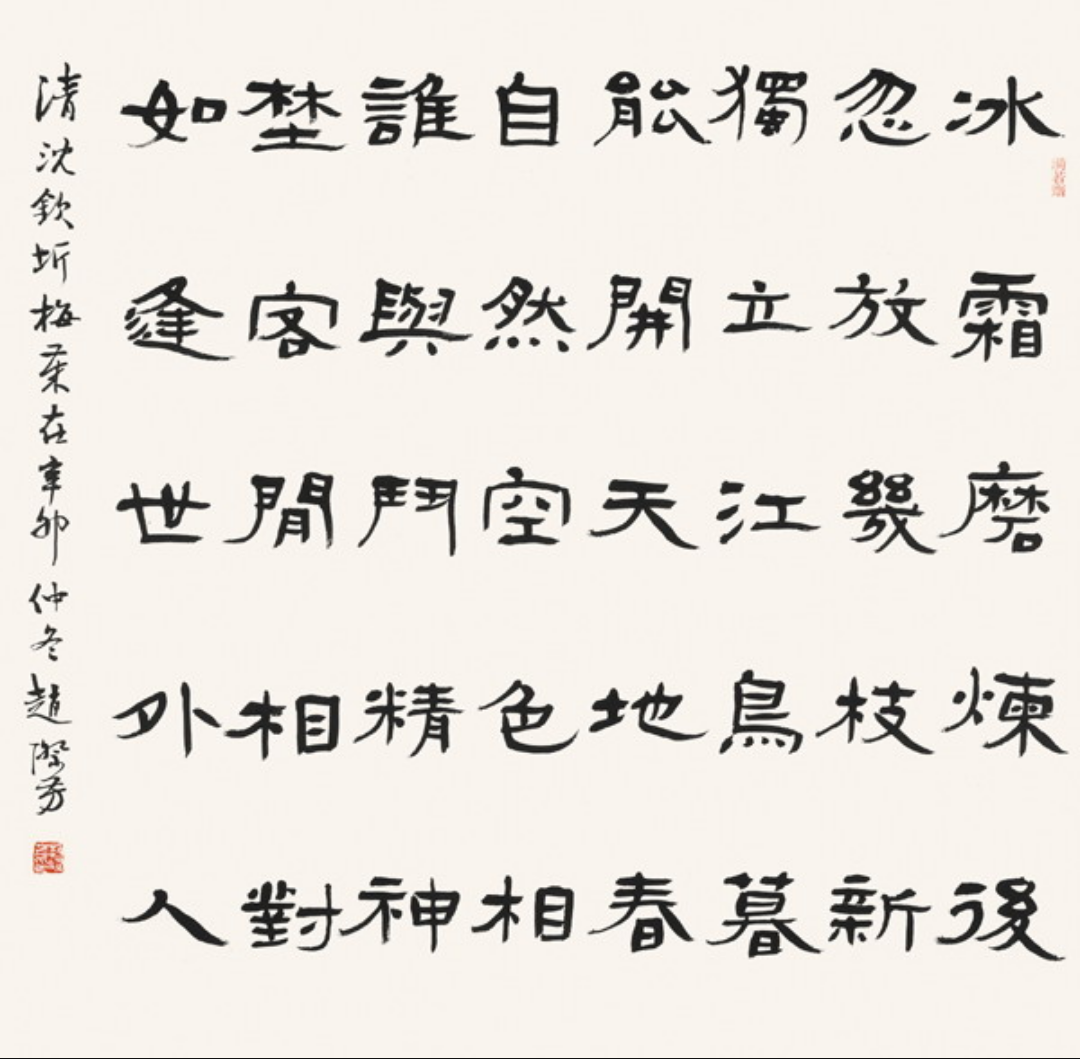 冰霜磨煉後
忽放幾枝新
獨立江鳥暮
能開天地春
自然空色相
誰與鬥精神
埜客閒相對
如逢世外人
清沈欽圻梅叶在辛卯仲冬趙際芳